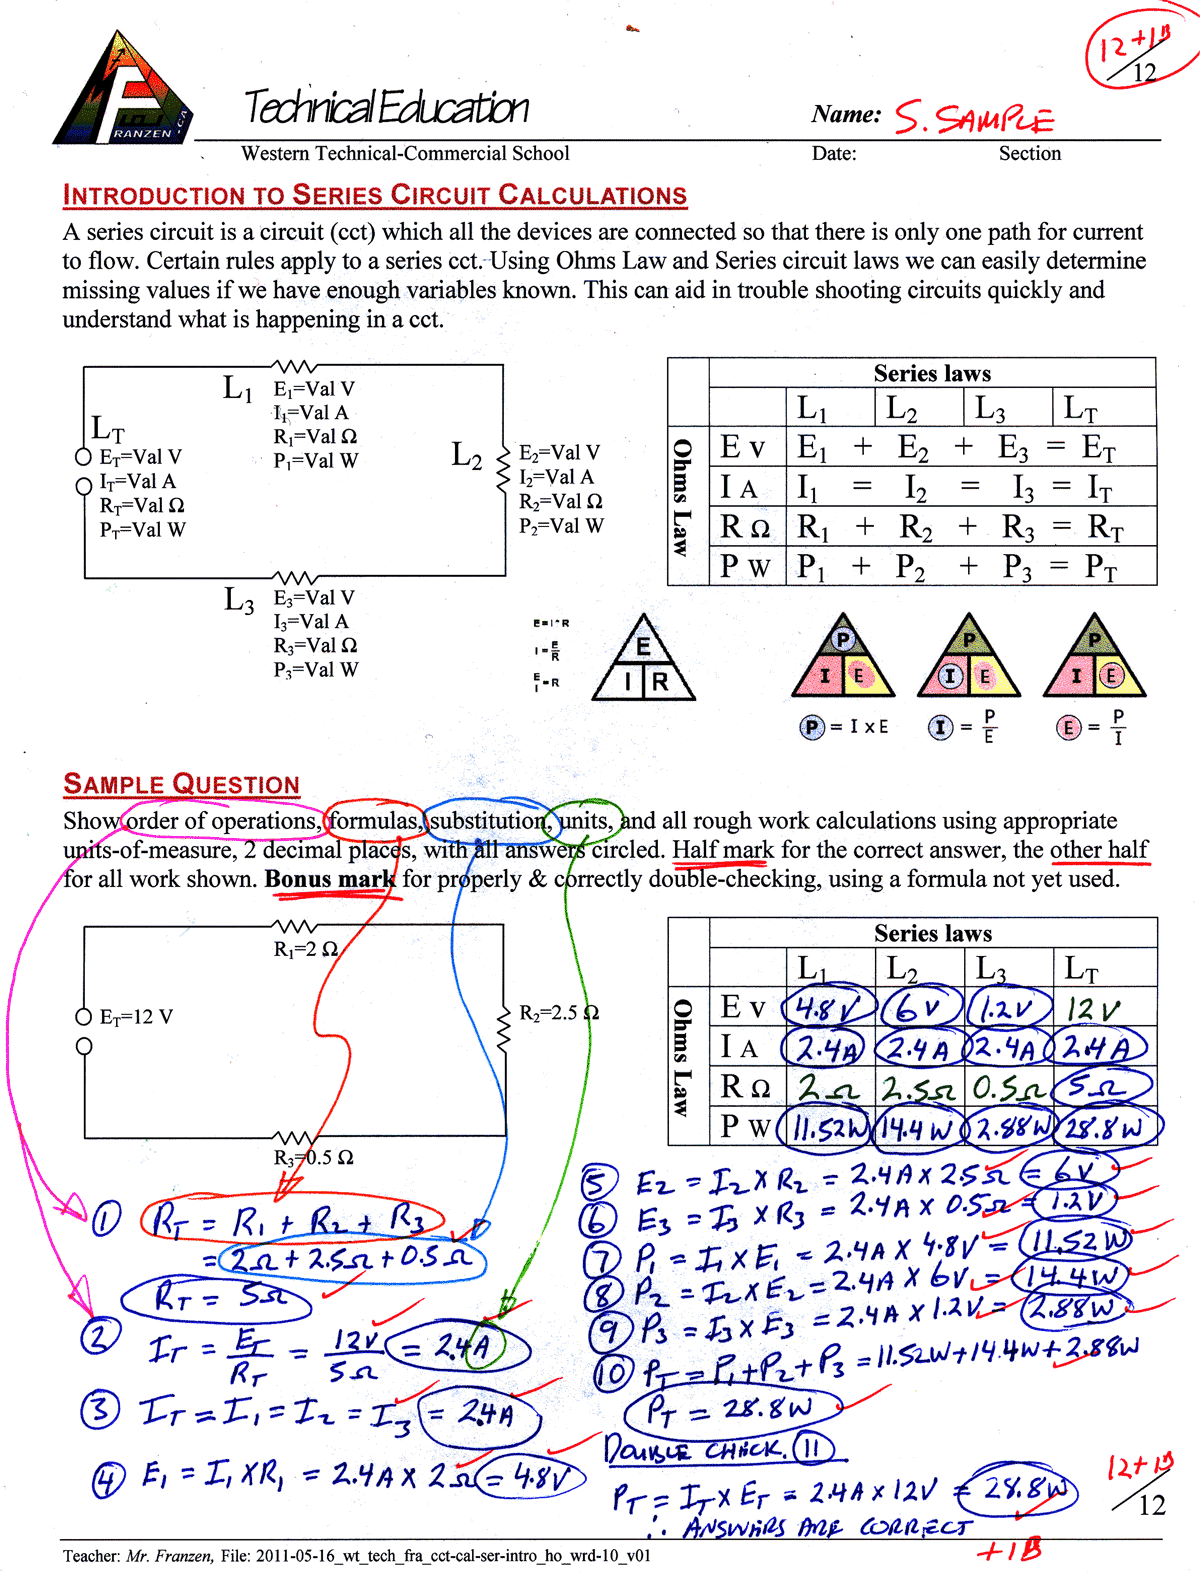 12+1B
12
FRANZEN
.CA
Technical Education
Name: S. SAMPLE
Western Technical-Commercial School Date: Section
INTRODUCTION TO SERIES CIRCUIT CALCULATIONS
A series circuit is a circuit (cct) which all the devices are connected so that there is only one path for current
to flow. Certain rules apply to a series cct. Using Ohms Law and Series circuit laws we can easily determine
missing values if we have enough variables known. This can aid in trouble shooting circuits quickly and
understand what is happening in a cct.
L1
E1=Val V
I1=Val A
R1=Val Ω
P1=Val W
LT
ET=Val V
IT=Val A
RT=Val Ω
PT=Val W
L2
E2=Val V
I2=Val A
R2=Val Ω
P2=Val W
L3
E3=Val V
I3=Val A
R3=Val Ω
P3=Val W
Series laws
L1 L2 L3 LT
Ohms Law
E V E1 + E2 + E3 = ET
I A I1 = I2 = I3 = IT
R Ω R1 + R2 + R3 = RT
P W P1 + P2 + P3 = PT
E=I*R
I=E/R
E/I=R
E
I R
P
I E
P
I E
P
I E
P = I x E
I = P/E
E = P/I
SAMPLE QUESTION
Show order of operations, formulas, substitution, units, and all rough work calculations using appropriate
units-of-measure, 2 decimal places, with all answers circled. Half mark for the correct answer, the other half
for all work shown. Bonus mark for properly & correctly double-checking, using a formula not yet used.
R1=2 Ω
ET=12 V
R2=2.5 Ω
R3=0.5 Ω
Series laws
L1 L2 L3 LT
Ohms Law
E V 4.8V 6V 1.2V 12V
I A 2.4A 2.4A 2.4A 2.4A
R Ω 2Ω 2.5Ω 0.5Ω 5Ω
P W 11.52W 14.4W 2.88W 28.8W
1 RT = R1 + R2 + R3
= 2Ω + 2.5Ω + 0.5Ω
RT = 5Ω
2 IT = ET/RT = 12V/5Ω = 2.4A
3 IT = I1 = I2 = I3 = 2.4A
4 E1 = I1 X R1 = 2.4A X 2Ω = 4.8V
5 E2 = I2 X R2 = 2.4A X 2.5Ω = 6V
6 E3 = I3 X R3 = 2.4A X 0.5Ω = 1.2V
7 P1 = I1 X E1 = 2.4A X 4.8V = 11.52W
8 P2 = I2 X E2 = 2.4A X 6V = 14.4W
9 P3 = I3 X E3 = 2.4A X 1.2V = 2.88W
10 PT = P1 + P2 + P3 = 11.52W + 14.4W + 2.88W
PT = 28.8W
DOUBLE CHECK. 11
PT = IT X ET = 2.4A X 12V = 28.8W
∴ ANSWERS ARE CORRECT
+1B
12+1B
12
Teacher: Mr. Franzen, File: 2011-05-16_wt_tech_fra_cct-cal-ser-intro_ho_wrd-10_v01